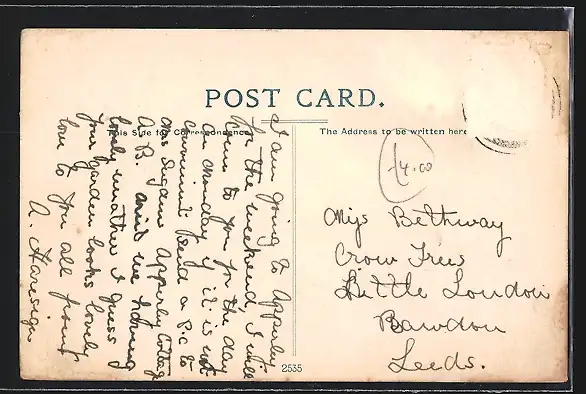 POST CARD.
This Side for Correspondence
The Address to be written here
I am going to Apperley
for the weekend, I will
come to you for the day
on Monday if it is not
convenient send a P.C to
Mrs Apperley Cottage
A. B. we having
lovely weather I guess
your garden looks lovely
love to you all from
A.
14.00
Miss Bethway
Crow Trees
Little London
Rawdon
Leeds.
2535